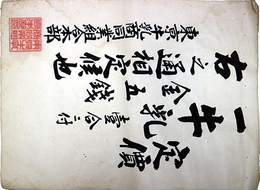 定價
一牛乳壹合ニ付
金五錢
右之通相定候也
東京牛乳商同業組合本部